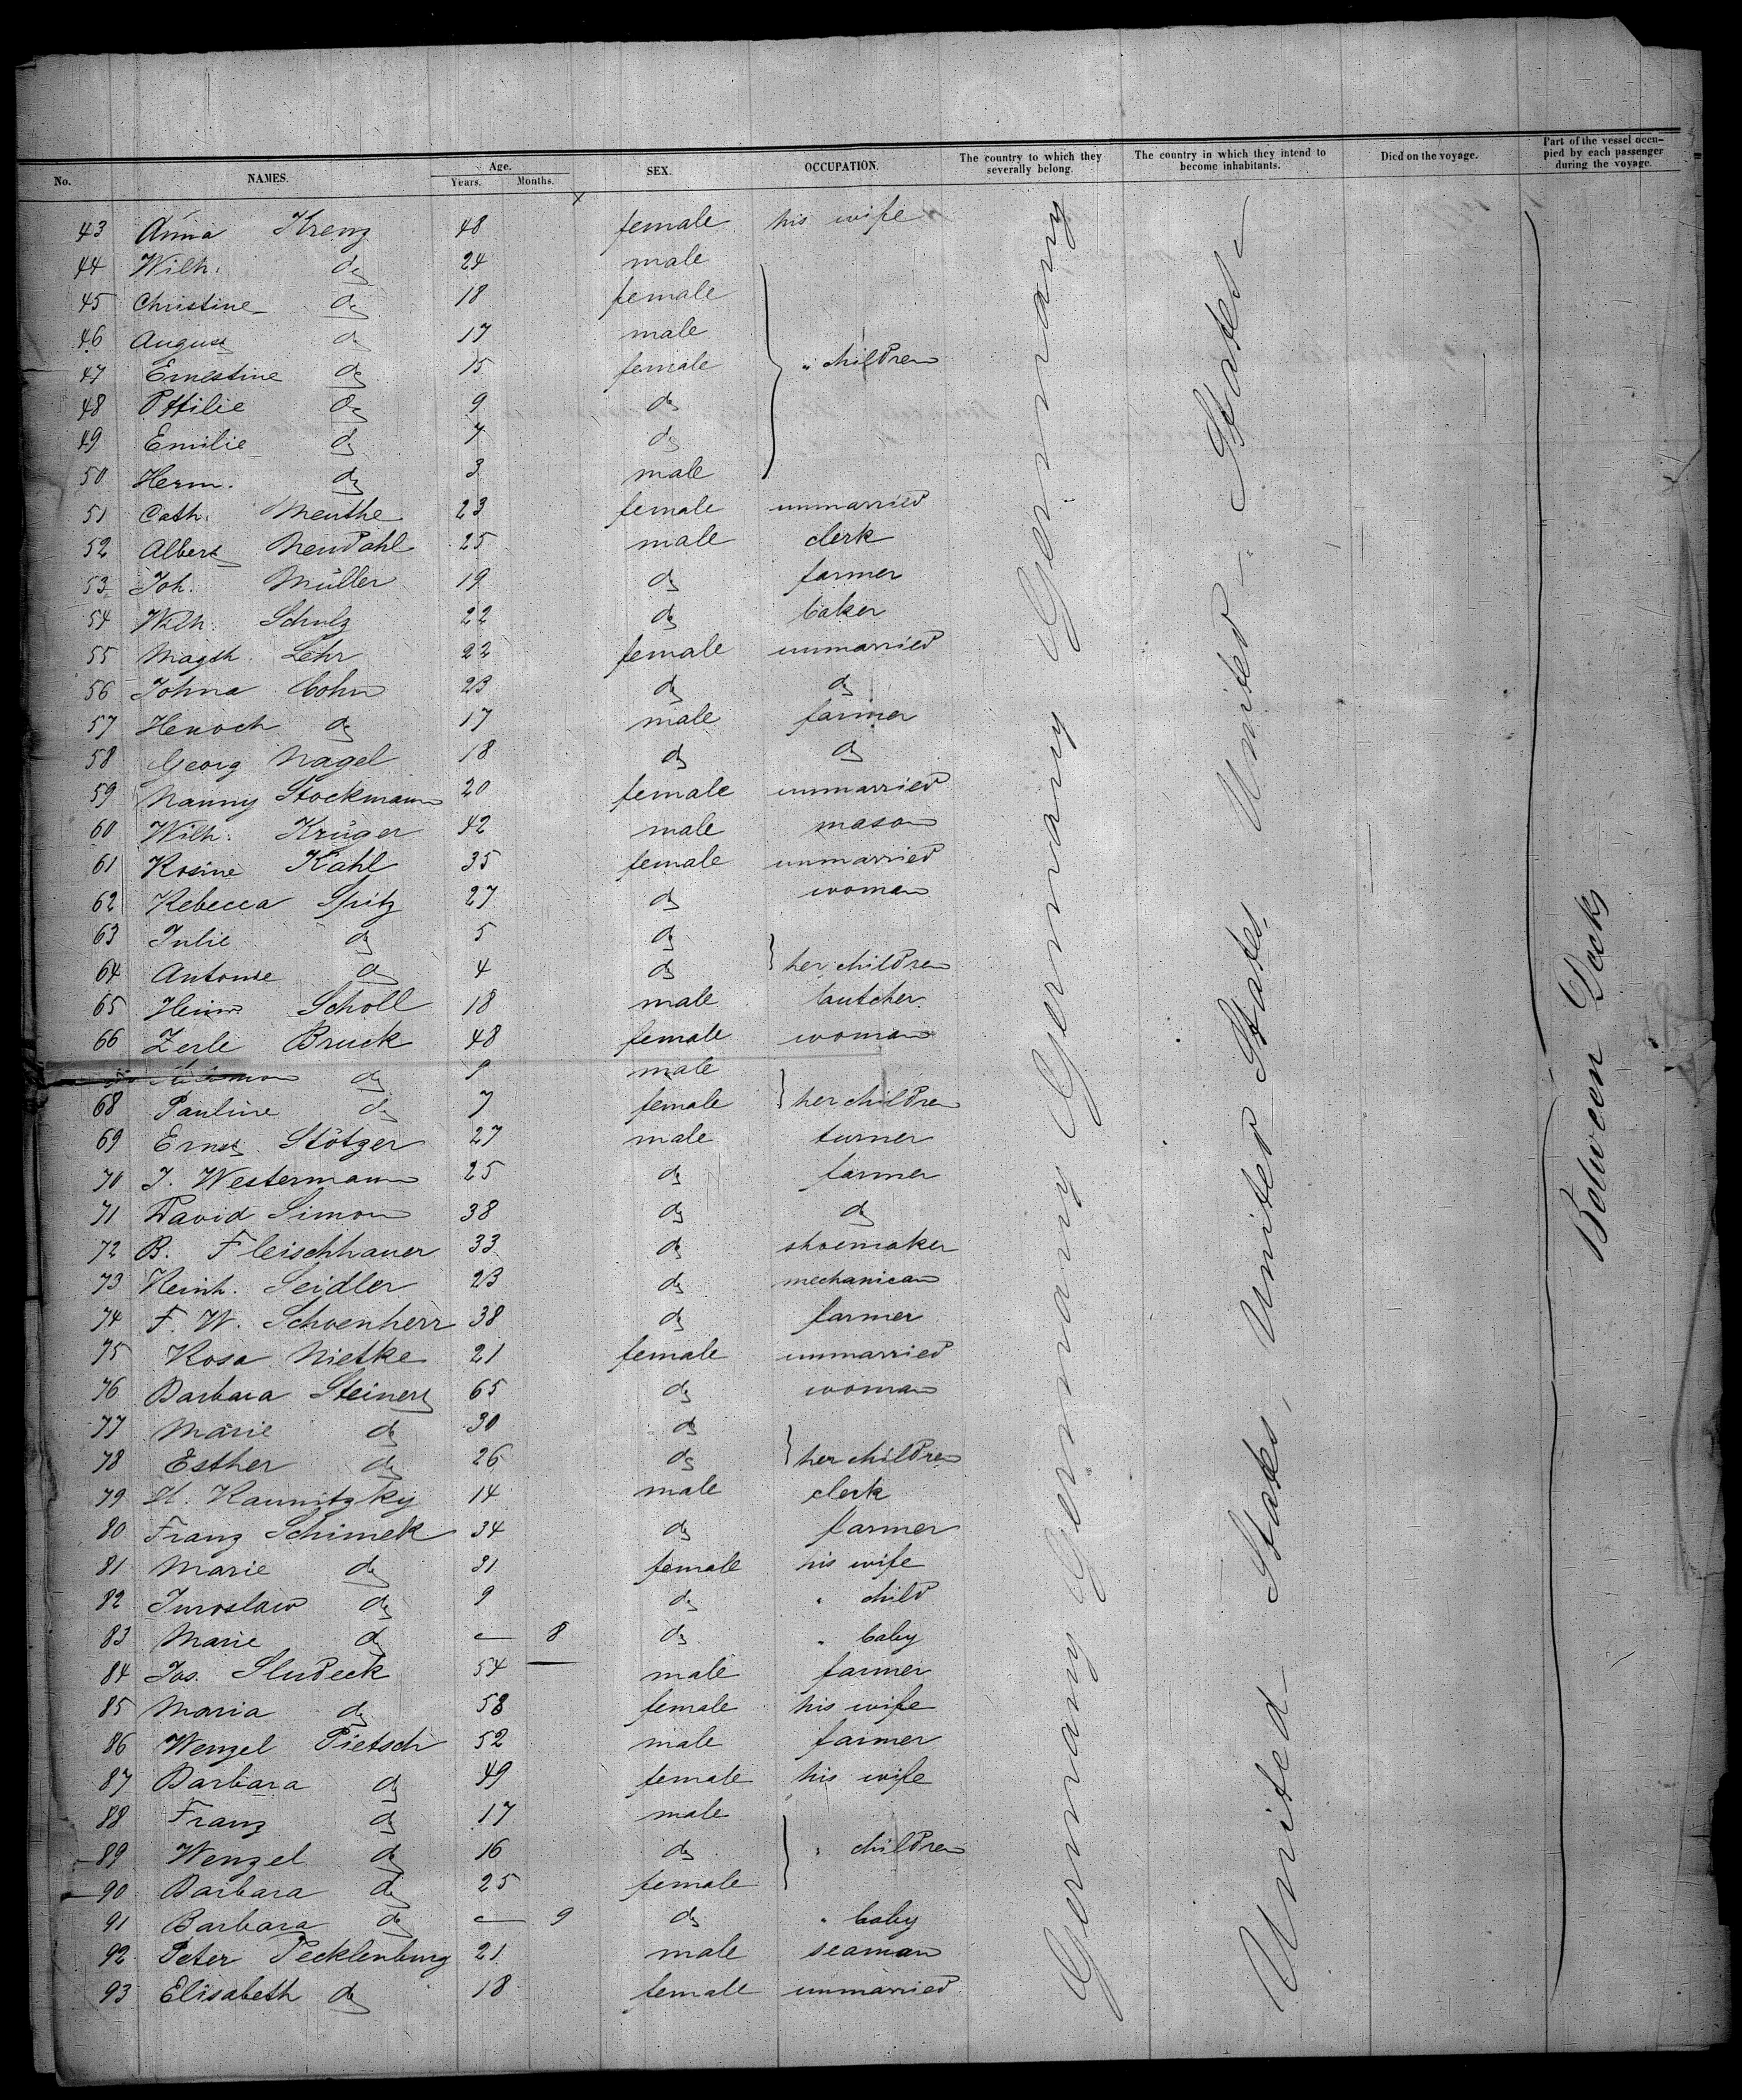 No. NAMES. Age. Years. Months. SEX. OCCUPATION. The country to which they severally belong. The country in which they intend to become inhabitants. Died on the voyage. Part of the vessel occupied by each passenger during the voyage.
43 Anna Krenz 48 female his wife
44 Wilh. do 24 male
45 Christine do 18 female
46 August do 17 male
47 Ernestine do 15 female " children
48 Ottilie do 9 do
49 Emilie do 7 do
50 Herm. do 3 male
51 Cath. Menthe 23 female unmarried
52 Albert Neudahl 25 male clerk
53 Joh. Müller 19 do farmer
54 Wilh. Schulz 22 do baker
55 Magth. Lehr 22 female unmarried
56 Johna Cohn 23 do do
57 Henoch do 17 male farmer
58 Georg Nagel 18 do do
59 Nanny Stockmann 20 female unmarried
60 Wilh. Krüger 42 male mason
61 Rosine Kahl 35 female unmarried
62 Rebecca Spitz 27 do woman
63 Julie do 5 do
64 Antonie do 4 do her children
65 Heinr Scholl 18 male butcher
66 Zerle Bruck 48 female woman
do 9 male
68 Pauline do 7 female her children
69 Ernst Stötzer 27 male turner
70 J. Westermann 25 do farmer
71 David Simon 38 do do
72 B. Fleischhauer 33 do shoemaker
73 Heinh. Seidler 23 do mechanican
74 F. W. Schoenherr 38 do farmer
75 Rosa Nietke 21 female unmarried
76 Barbara Steinert 65 do woman
77 Marie do 30 do
78 Esther do 26 do her children
79 H. Kaunitzky 14 male clerk
80 Franz Schimek 34 do farmer
81 Marie do 31 female his wife
82 Juroslaw do 9 do " child
83 Marie do — 8 do " baby
84 Jos. Sludeck 54 — male farmer
85 Maria do 58 female his wife
86 Wenzel Pietsch 52 male farmer
87 Barbara do 49 female his wife
88 Franz do 17 male
89 Wenzel do 16 do " children
90 Barbara do 25 female
91 Barbara do — 9 do " baby
92 Peter Tecklenburg 21 male seaman
93 Elisabeth do 18 female unmarried
Germany Germany Germany Germany Germany
United States, United States, United States
Between Decks